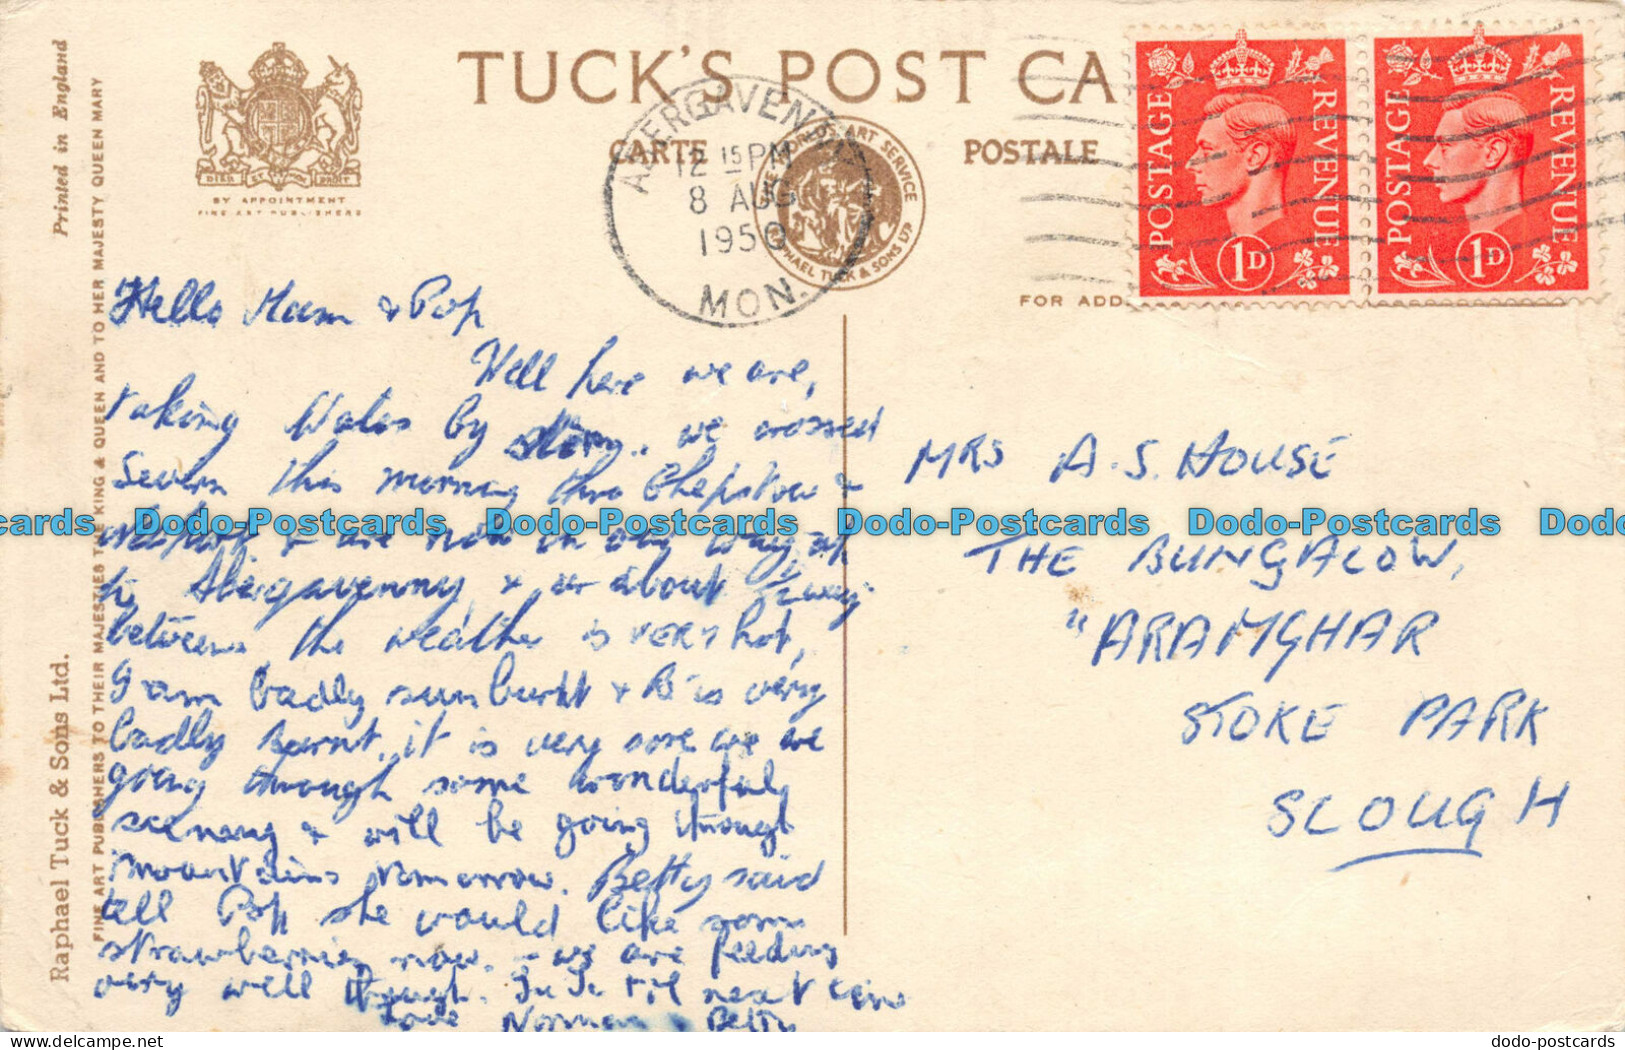 TUCK'S POST CA
CARTE POSTALE
BY APPOINTMENT
FINE ART PUBLISHERS
ABERGAVENNY
12 15 PM
8 AUG
1950
MON.
ART SERVICE
RAPHAEL TUCK & SONS LTD
POSTAGE REVENUE
1D
POSTAGE REVENUE
1D
FOR ADD
Printed in England
Raphael Tuck & Sons Ltd.
FINE ART PUBLISHERS TO THEIR MAJESTIES THE KING & QUEEN AND TO HER MAJESTY QUEEN MARY
Hello Mum & Pop
Well here we are,
taking Wales by storm.. we crossed
Severn this morning thro Chepstow &
& are now on our way up
to Abergavenny, & about ½ way
between the weather is VERY hot,
I am badly sunburnt & B is very
badly burnt, it is very sore we are
going through some wonderful
scenery & will be going through
mountains tomorrow. Betty said
tell Pop she would like some
strawberries now. - we are feeding
very well though. Ta Ta til next time
Love Norman & Betty
MRS A.S. HOUSE
THE BUNGALOW,
"ARAMGHAR
STOKE PARK
SLOUGH
cards Dodo-Postcards Dodo-Postcards Dodo-Postcards Dodo-Postcards Dodo
dodo-postcards.com